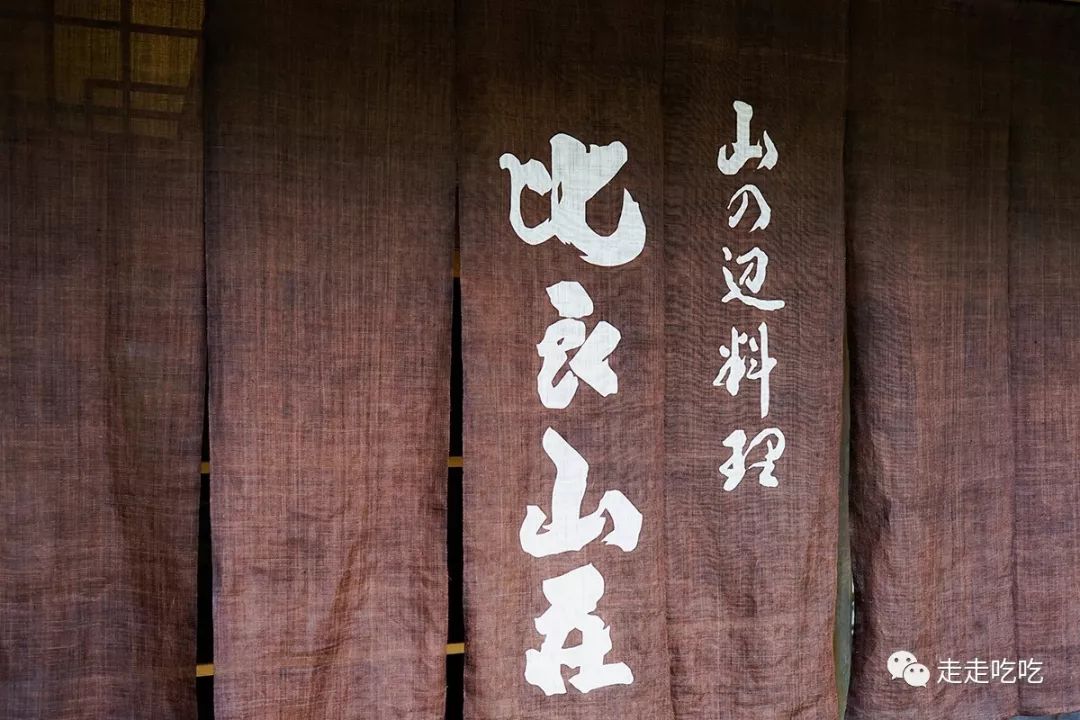 山の辺料理
比良山荘
走走吃吃